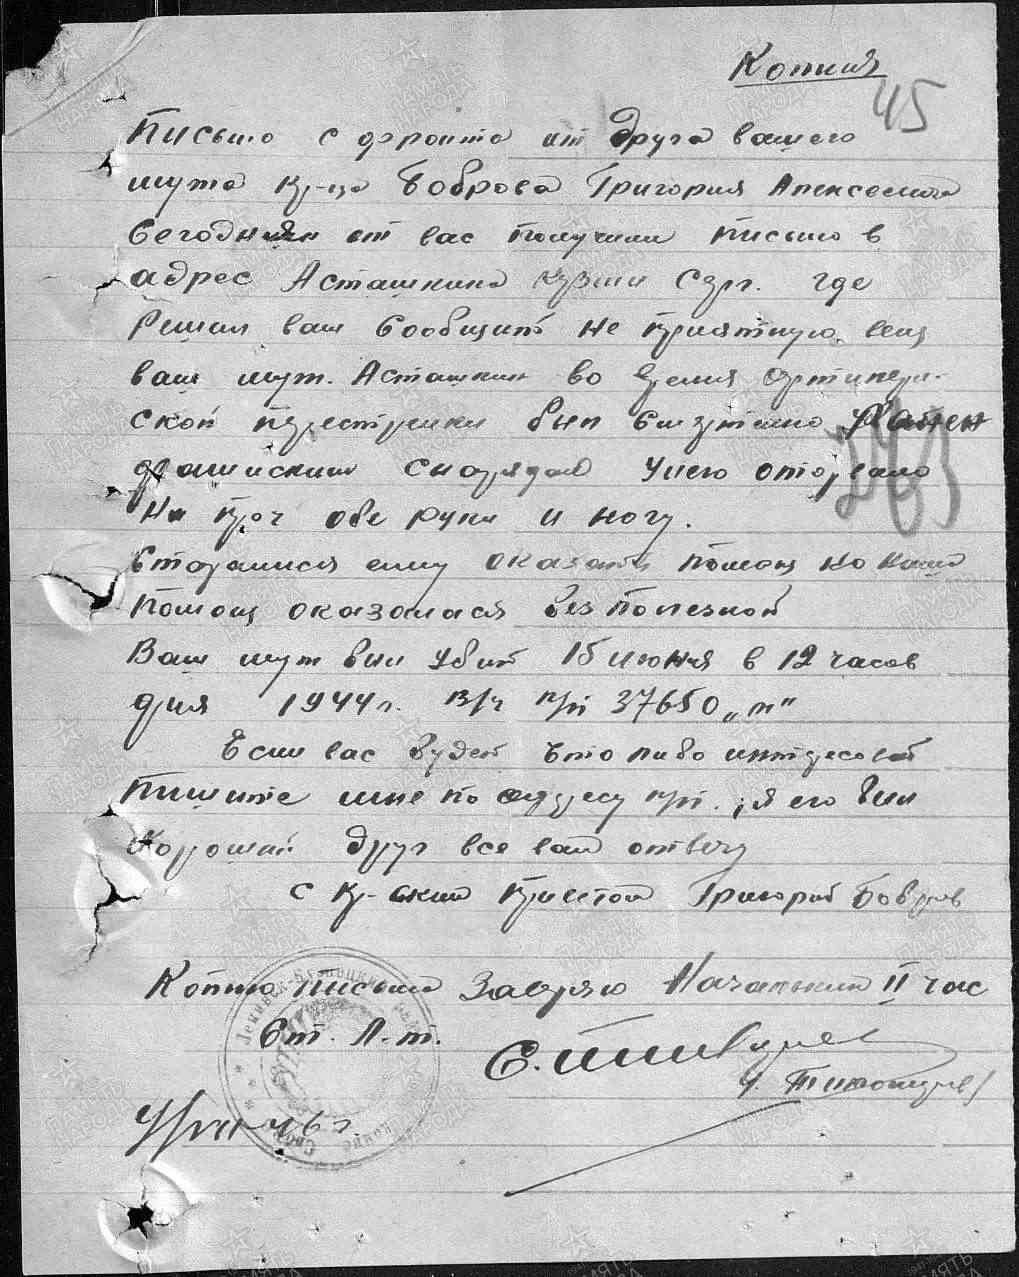 Копия
45
Письмо с фронта от друга вашего
мужа кр-ца Боброва Григория Алексеевича
Сегодня от вас получили письмо в
адрес Асташкина Кузьмы Серг. где
Решил вам Сообщить не приятную весц
ваш муж. Асташкин во время Артилери-
ской перестрелки был смертельно Ранен
фашиским снарядом у него оторвало
На проч обе руки и ногу.
Старались ему оказать помощ но наша
помощ оказалася без полезной
Ваш муж был убит 15 июня в 12 часов
дня 1944 г. в/ч п/п 37650 „т"
Если вас будет что либо интересоват
Пишите мне по адресу п/п. , я его был
хороший друг все вам отвечу
с кр-ским приветом Григорий Бобров
Копию письма Заверяю Начальник II час
Ст. Л-т.
46 г.